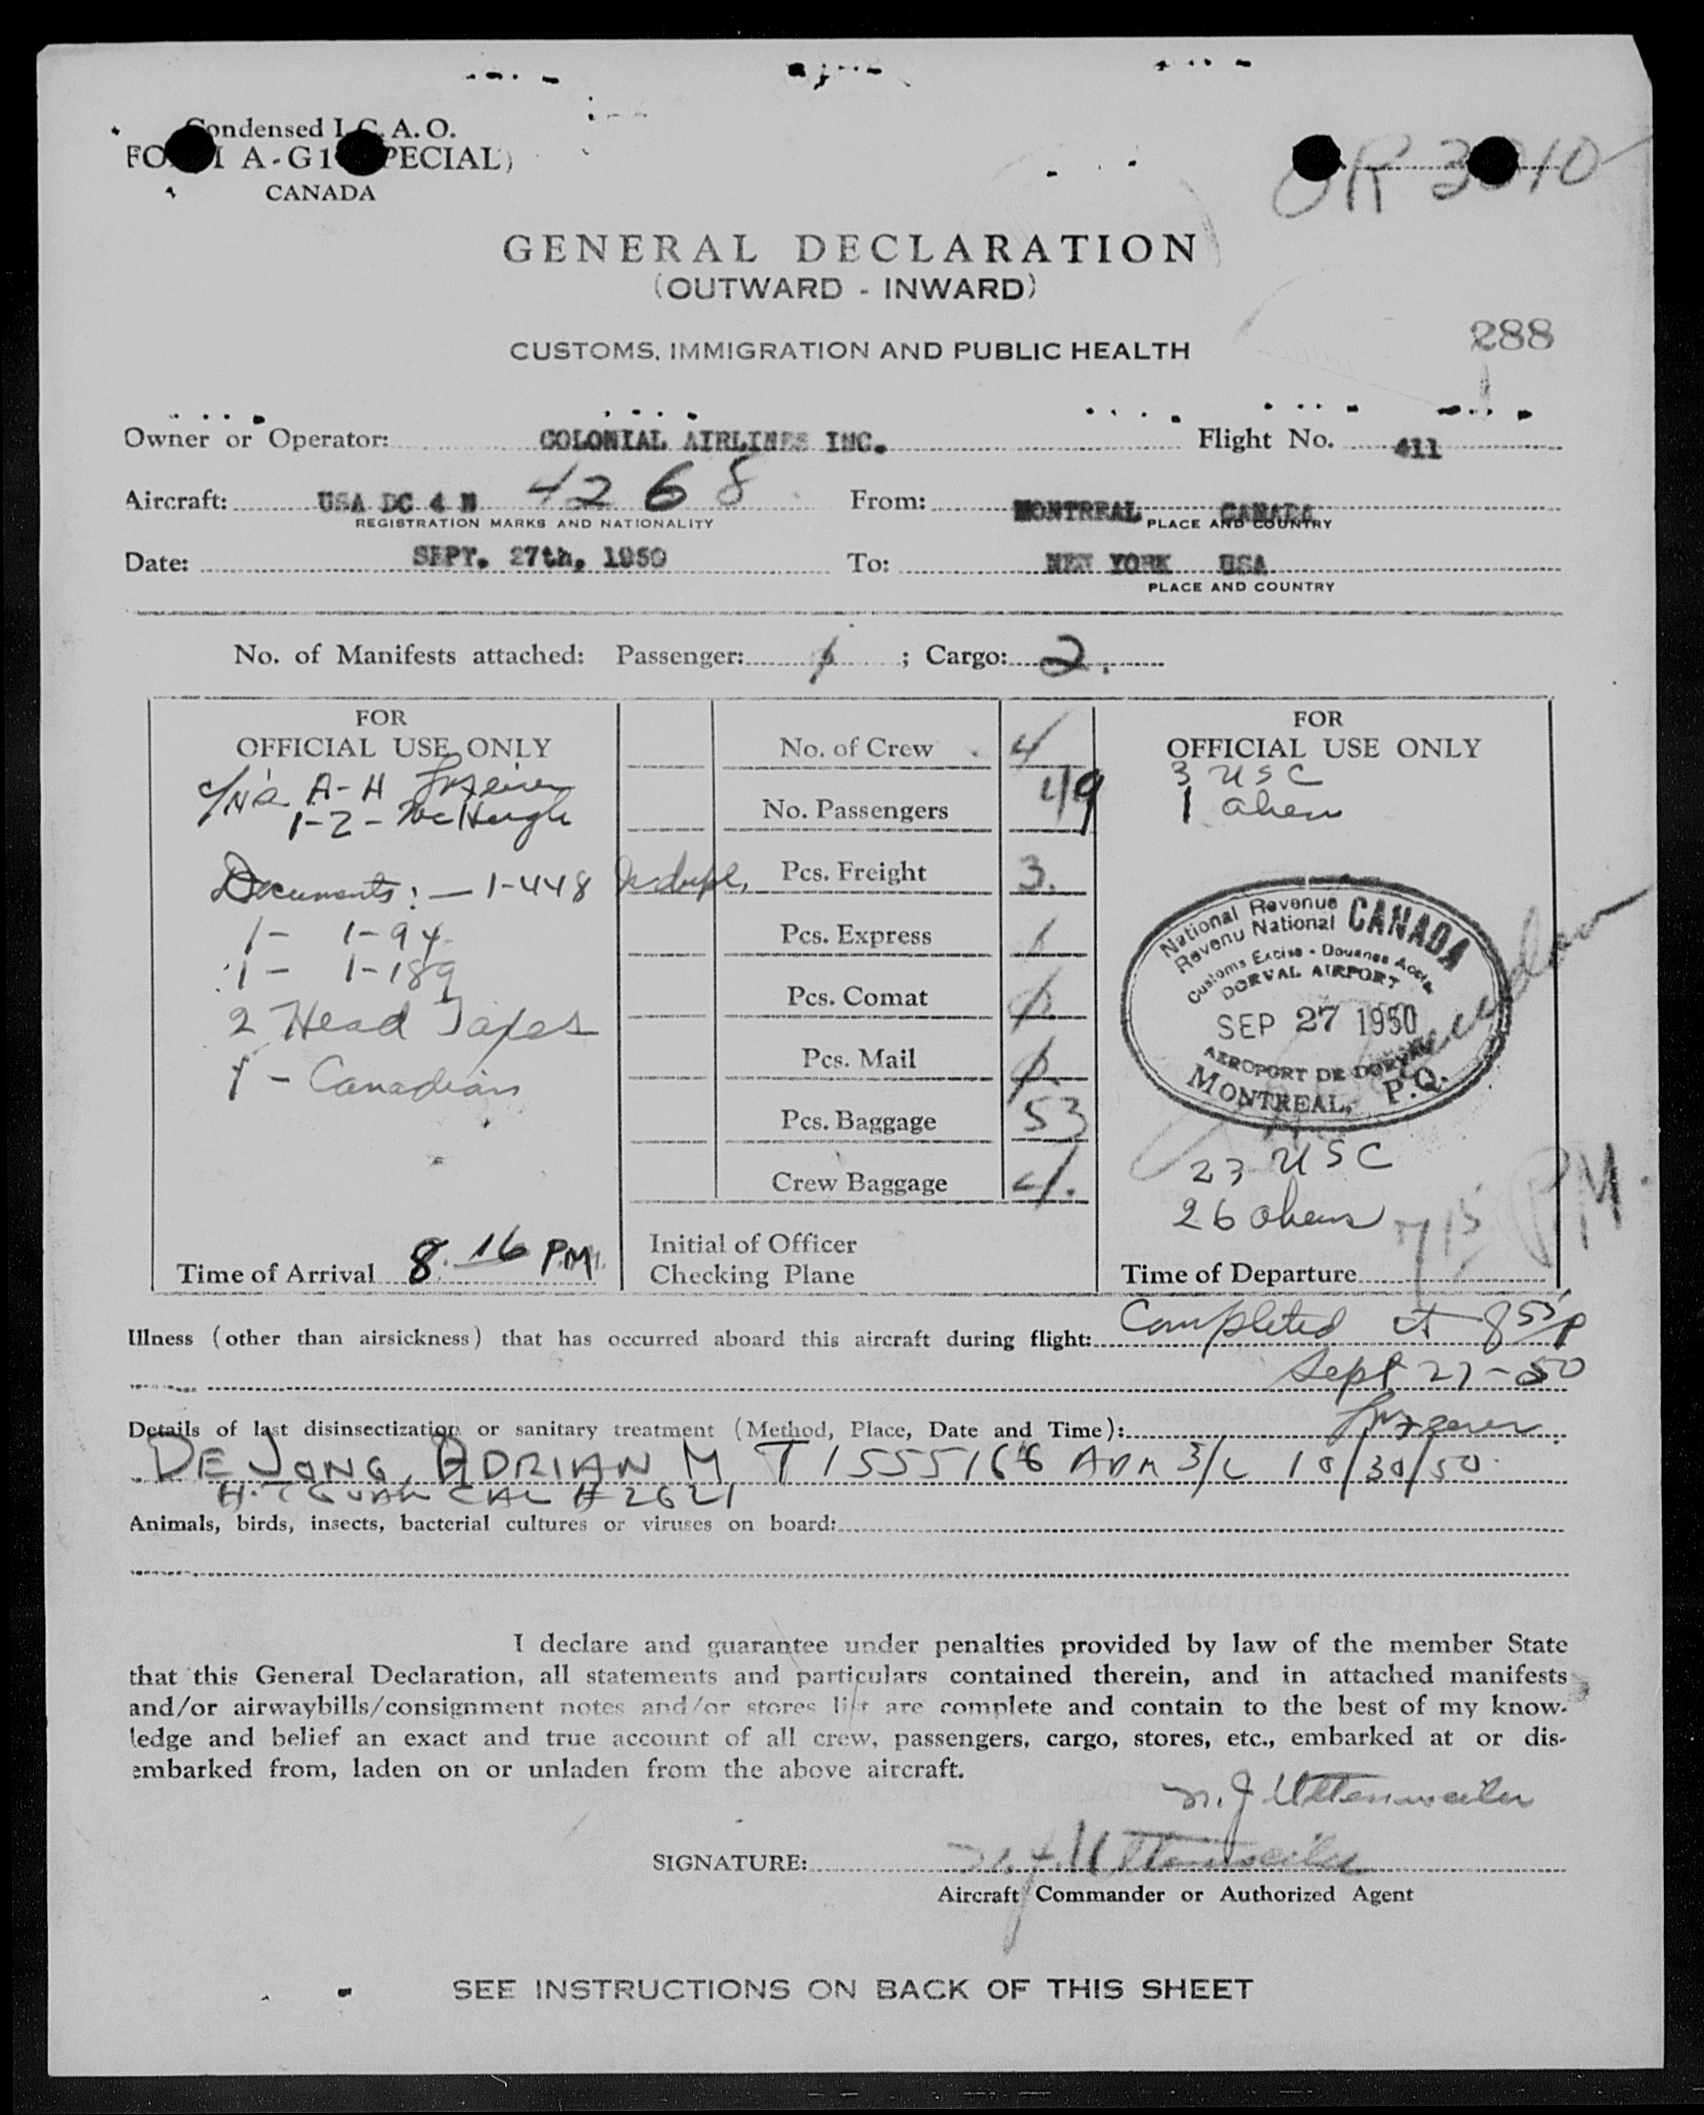 Condensed I.C.A.O.
FORM A-G1 (SPECIAL)
CANADA
GENERAL DECLARATION
(OUTWARD - INWARD)
CUSTOMS, IMMIGRATION AND PUBLIC HEALTH
288
Owner or Operator: COLONIAL AIRLINES INC. Flight No. 411
Aircraft: USA DC 4 N 4268 From: MONTREAL CANADA
REGISTRATION MARKS AND NATIONALITY PLACE AND COUNTRY
Date: SEPT. 27th, 1950 To: NEW YORK USA
PLACE AND COUNTRY
No. of Manifests attached: Passenger: 1 ; Cargo: 2.
FOR
OFFICIAL USE ONLY
A-H
1-Z - McHugh
Documents: - 1-448 in dupl.
1- 1-94
1- 1-189
2 Head Taxes
1 - Canadian
Time of Arrival 8.16 P.M.
No. of Crew 4
No. Passengers 49
Pcs. Freight 3.
Pcs. Express
Pcs. Comat
Pcs. Mail
Pcs. Baggage 53
Crew Baggage 4.
Initial of Officer
Checking Plane
FOR
OFFICIAL USE ONLY
3 USC
1 alien
National Revenue CANADA
Revenu National
Customs Excise - Douanes Accise
DORVAL AIRPORT
SEP 27 1950
AEROPORT DE DORVAL
MONTREAL, P.Q.
23 USC
26 aliens
Time of Departure 715 PM.
Illness (other than airsickness) that has occurred aboard this aircraft during flight: Completed at 855 P
Sept 27-50
Details of last disinsectization or sanitary treatment (Method, Place, Date and Time):
DE JONG, ADRIAN M T1555166 ADM 3/2 10/30/50
# 2621
Animals, birds, insects, bacterial cultures or viruses on board:
I declare and guarantee under penalties provided by law of the member State
that this General Declaration, all statements and particulars contained therein, and in attached manifests
and/or airwaybills/consignment notes and/or stores list are complete and contain to the best of my know-
ledge and belief an exact and true account of all crew, passengers, cargo, stores, etc., embarked at or dis-
embarked from, laden on or unladen from the above aircraft.
N. J. Uttenweiler
SIGNATURE: N. J. Uttenweiler
Aircraft Commander or Authorized Agent
SEE INSTRUCTIONS ON BACK OF THIS SHEET